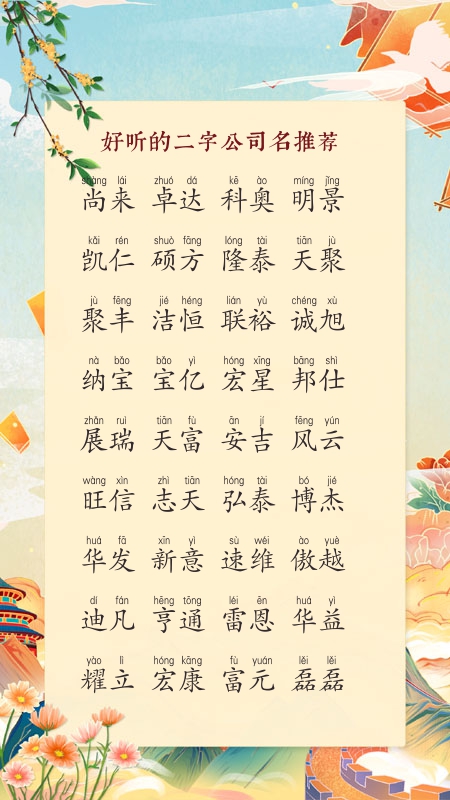 好听的二字公司名推荐
shàng lái zhuó dá kē ào míng jǐng
尚来 卓达 科奥 明景
kǎi rén shuò fāng lóng tài tiān jù
凯仁 硕方 隆泰 天聚
jù fēng jié héng lián yù chéng xù
聚丰 洁恒 联裕 诚旭
nà bǎo bǎo yì hóng xīng bāng shì
纳宝 宝亿 宏星 邦仕
zhǎn ruì tiān fù ān jí fēng yún
展瑞 天富 安吉 风云
wàng xìn zhì tiān hóng tài bó jié
旺信 志天 弘泰 博杰
huá fā xīn yì sù wéi ào yuè
华发 新意 速维 傲越
dí fán hēng tōng léi ēn huá yì
迪凡 亨通 雷恩 华益
yào lì hóng kāng fù yuán lěi lěi
耀立 宏康 富元 磊磊